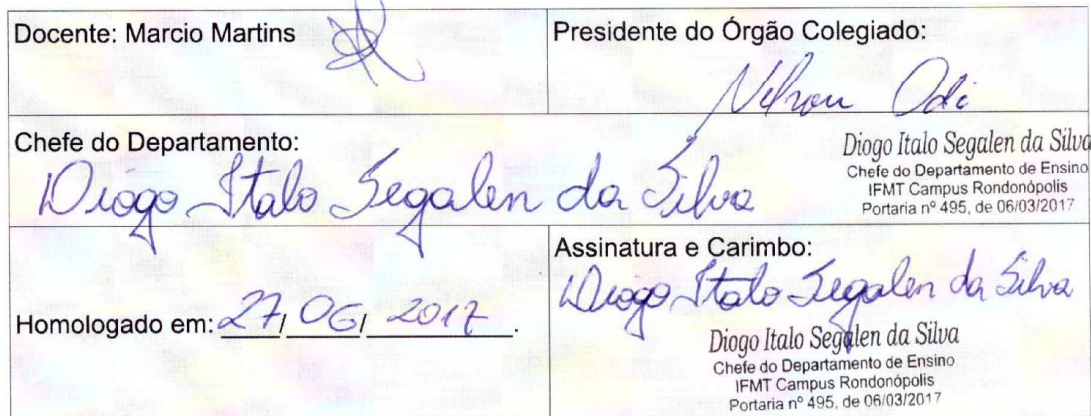 Docente: Marcio Martins
Presidente do Órgão Colegiado:
Chefe do Departamento:
Diogo Italo Segalen da Silva
Diogo Italo Segalen da Silva
Chefe do Departamento de Ensino
IFMT Campus Rondonópolis
Portaria nº 495, de 06/03/2017
Homologado em: 27/ 06/ 2017.
Assinatura e Carimbo:
Diogo Italo Segalen da Silva
Diogo Italo Segalen da Silva
Chefe do Departamento de Ensino
IFMT Campus Rondonópolis
Portaria nº 495, de 06/03/2017